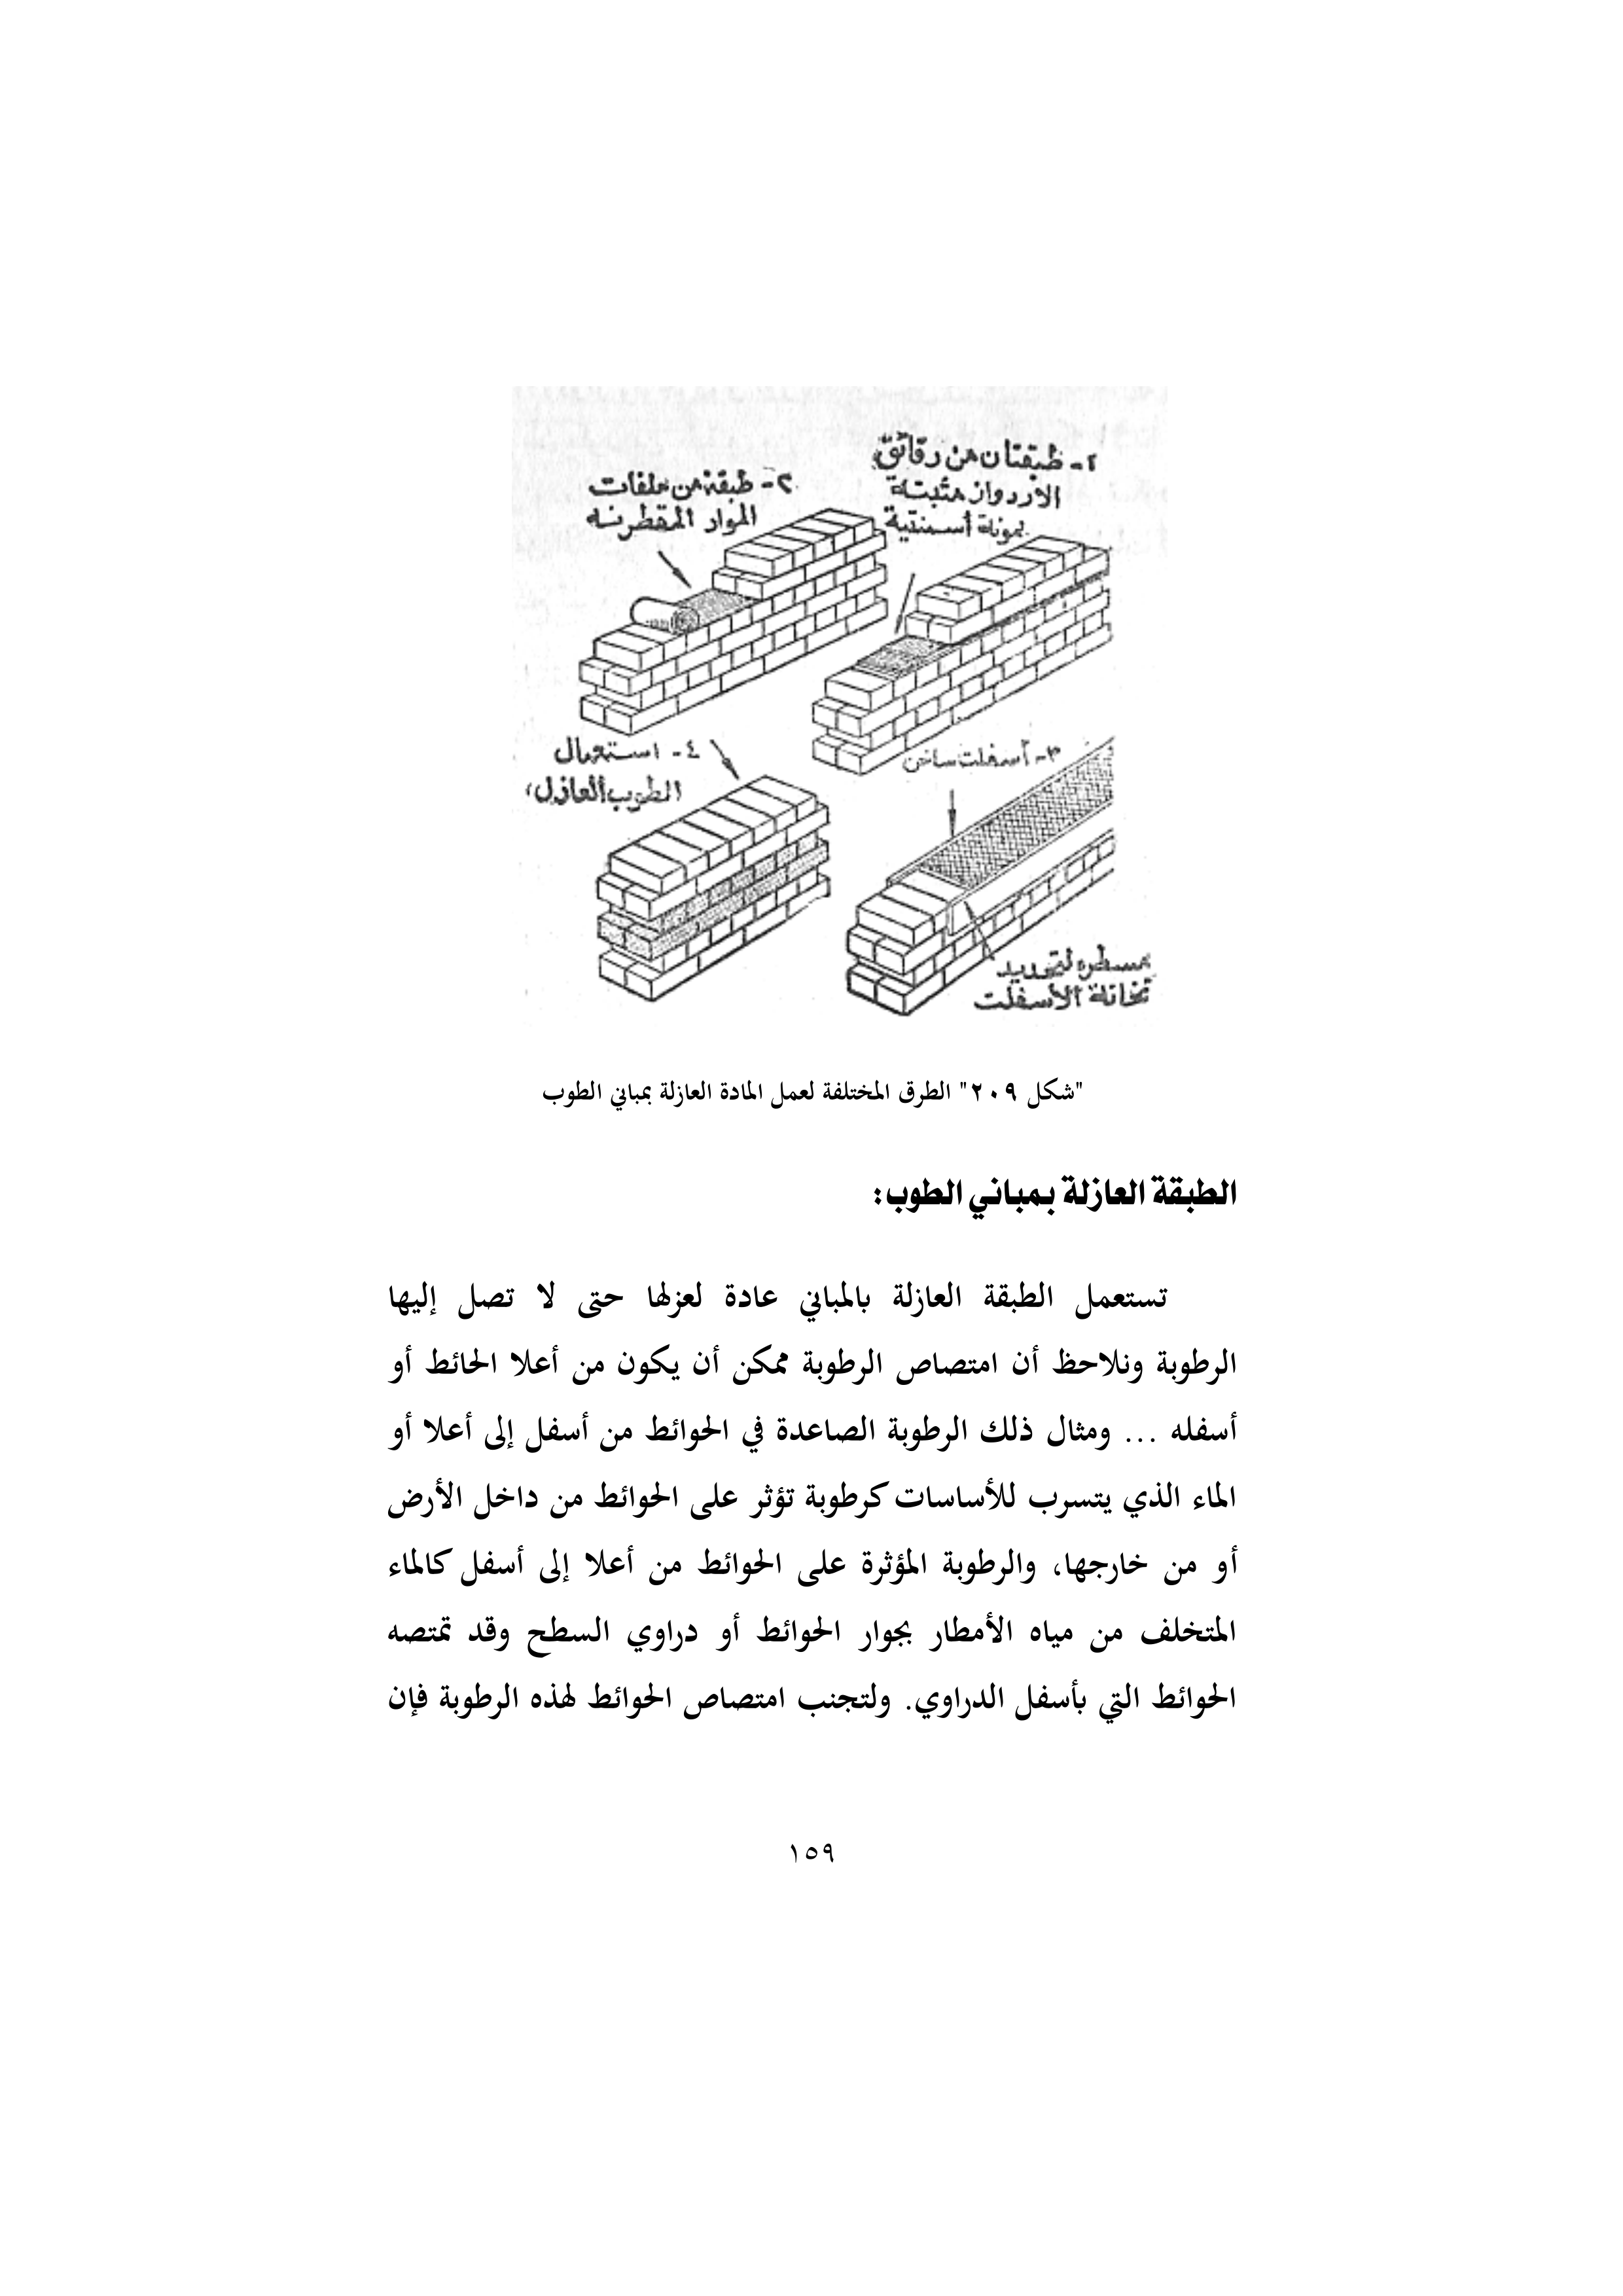 ١- طبقتان من رقائق
الاردواز مثبتة
بمونة أسمنتية
٢- طبقة من ملفات
المواد المقطرنة
٣- أسفلت ساخن
مسطره لتحديد
تخانة الأسفلت
٤- استعمال
الطوب العازل
"شكل ٢٠٩" الطرق المختلفة لعمل المادة العازلة بمباني الطوب
الطبقة العازلة بمباني الطوب:
تستعمل الطبقة العازلة بالمباني عادة لعزلها حتى لا تصل إليها
الرطوبة ونلاحظ أن امتصاص الرطوبة ممكن أن يكون من أعلا الحائط أو
أسفله ... ومثال ذلك الرطوبة الصاعدة في الحوائط من أسفل إلى أعلا أو
الماء الذي يتسرب للأساسات كرطوبة تؤثر على الحوائط من داخل الأرض
أو من خارجها، والرطوبة المؤثرة على الحوائط من أعلا إلى أسفل كالماء
المتخلف من مياه الأمطار بجوار الحوائط أو دراوي السطح وقد تمتصه
الحوائط التي بأسفل الدراوي. ولتجنب امتصاص الحوائط لهذه الرطوبة فإن
١٥٩